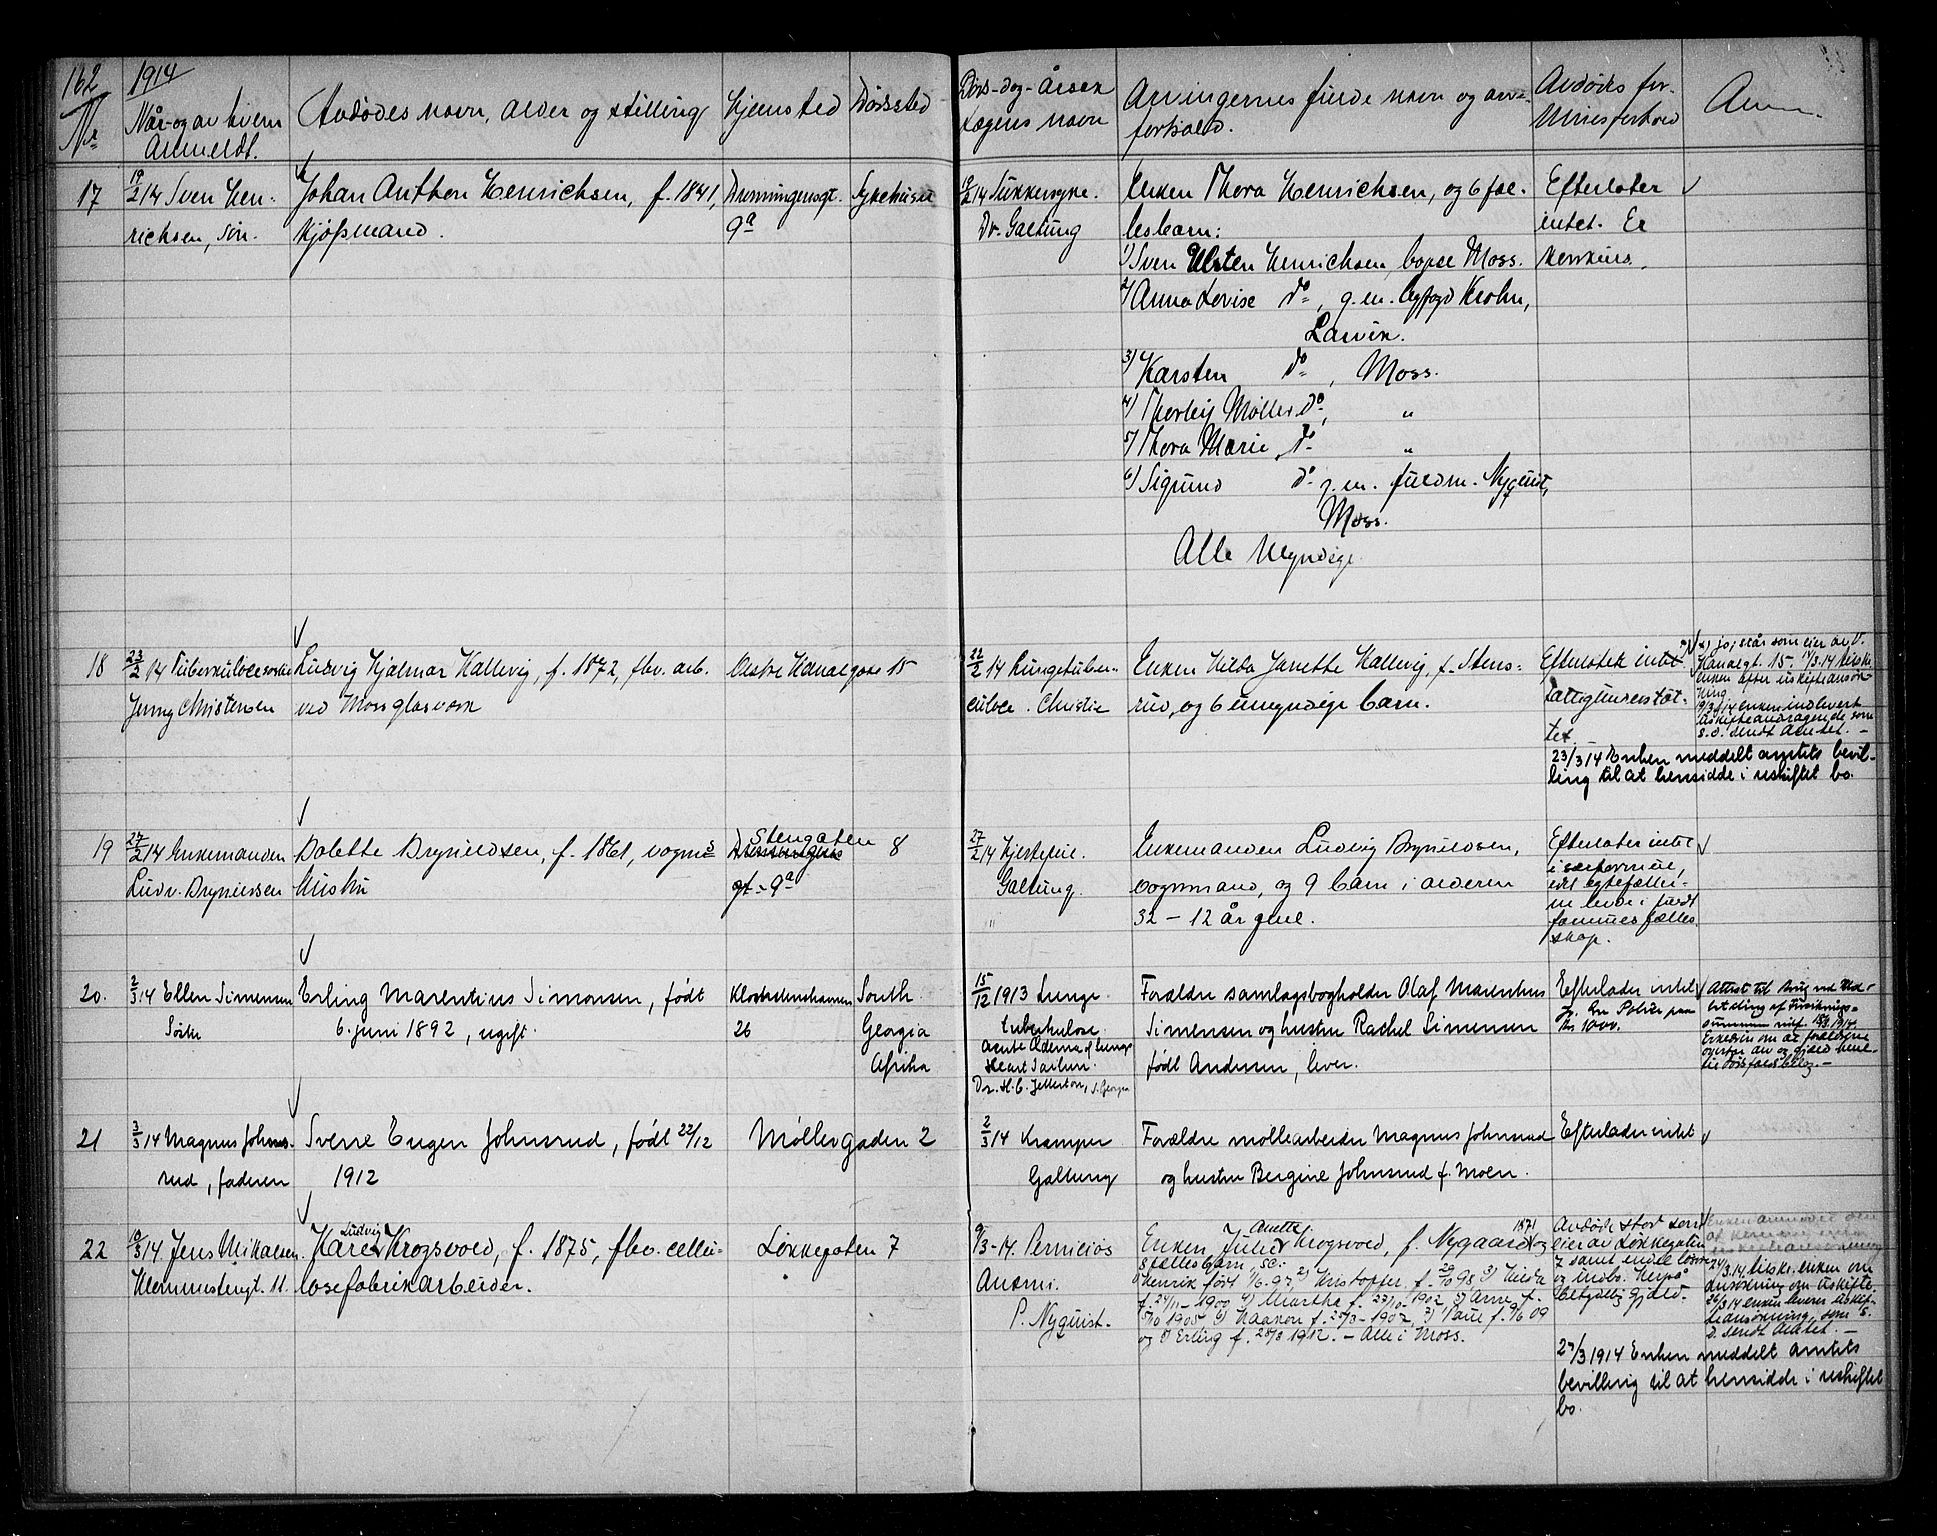 162
1914
Nr
Når og av hvem
Anmeldt.
Avdødes navn, alder og stilling
Hjemsted
Dødssted
Døds-dag-årsak
Lægens navn
Arvingernes fulde navn og arve-
forhold.
Avdødes for-
muesforhold
Anm.
17
19/2 14 Sven Hen-
richsen, søn.
Johan Anthon Henrichsen, f. 1841,
kjøpmand.
Dronningensgt.
9a
Sykehuset
19/2 14 Sukkersyke.
Dr. Galtung
Enken Thora Henrichsen, og 6 fæl-
lesbarn:
1) Sven Ulsten Henrichsen, bopæl Moss.
2) Anna Lovise do, g.m. Krohn,
Larvik.
3) Karsten do, Moss.
4) Thorleif Møller do, "
5) Thora Marie, do "
6) Sigrund do g.m. fuldm. Nyquist,
Moss.
Alle Myndige.
Efterlater
intet. Er
konkurs.
18
23/2 14 Tuberkulosesøster
Jenny Christensen
Ludvig Hjalmar Hallevig, f. 1872, fhv. arb.
ved Moss glasverk
Østre Kanalgate 15
22/2 14 Lungetuber-
culose. Christie
Enken Hilda Janette Hallevig, f. Stens-
rud, og 6 umyndige barn.
Efterlater intet
Fattigunderstøt-
tet
x) jo, står som eier av Ø.
Kanalgt. 15. 11/3.14 tilsk.
enken efter uskifteansøk-
ning
19/3 14 enken indlevert
uskifteandragende som
s.d. sendt Amtet. -
23/3 14 Enken meddelt amtets bevil-
ling til at hensidde i uskiftet bo.
19
27/2 14 Enkemanden
Ludv. Brynildsen
Dolette Brynildsen, f. 1861, vogmds
hustru
Stengaten 8
Dronningens
gt. 9a
27/2 14 Hjertefeil.
Galtung.
Enkemanden Ludvig Brynildsen,
vognmand, og 9 barn i alderen
32 - 12 år gml.
Efterlater intet
i særformue,
idet egtefælle-
ne levde i fuldt
formuesfælles
skap.
20.
2/3 14 Ellen Simensen
Søster
Erling Marentius Simonsen, født
6. juni 1892, ugift.
26
South
Georgia
Afrika
15/12 1913 Lunge-
tuberkulose.
Acute Ødema of lungs
Heart failure.
Dr. H. C. S. Georgia
Forældre samlagsbogholder Olaf Marentius
Simensen og hustru Rachel Simensen
født Andersen, lever.
Efterlader intet
jo. En Police paa
kr. 1000.
Attest til brug ved Ud-
betaling af Forsikrings-
summen utf. 18/3 1914.
Erklæring om at forældrene
overtar arv og gjæld
21
3/3 14 Magnus Johns-
rud, faderen
Sverre Eugen Johnsrud, født 22/12
1912
Møllergaden 2
2/3 14 Kramper
Galtung
Forældre møllearbeider Magnus Johnsrud
og hustru Bergine Johnsrud f. Moen.
Efterlader intet
22
10/3 14 Jens Mikalsen.
Klommestengt. 11.
Ludvig
Karel Krogsvold, f. 1875, fhv. cellu-
losefabrikarbeider.
Løkkegaten 7
9/3-14. Perniciøs
Anæmi.
P. Nyquist.
Anette 1871
Enken, Julie Krogsvold, f. Nygaard og
8 fællesbarn, sc:
1) Henrik født 1/6-97, 2) Kristoffer f. 29/10 98 3) Hilda
f. 24/11-1900 4) Martha f. 23/10-1902 5) Arne f.
5/10 1905 6) Haakon f. 25/3-1907, 7) Paul f. 9/6 09
og 8) Erling f. 28/8 1912. - Alle i Moss.
Avdøde stod som
eier av Løkkegaten
7 samt endel løsøre
og indbo. Herpå
betydelig gjæld.
24/3.14 tilsk. enken om
ansøkning om uskifte
26/3 14 enken leverer uskif-
teansøkning, som s.
d. sendt Amtet. -
27/3 1914 Enken meddelt amtets
bevilling til at hensidde i uskiftet
bo.